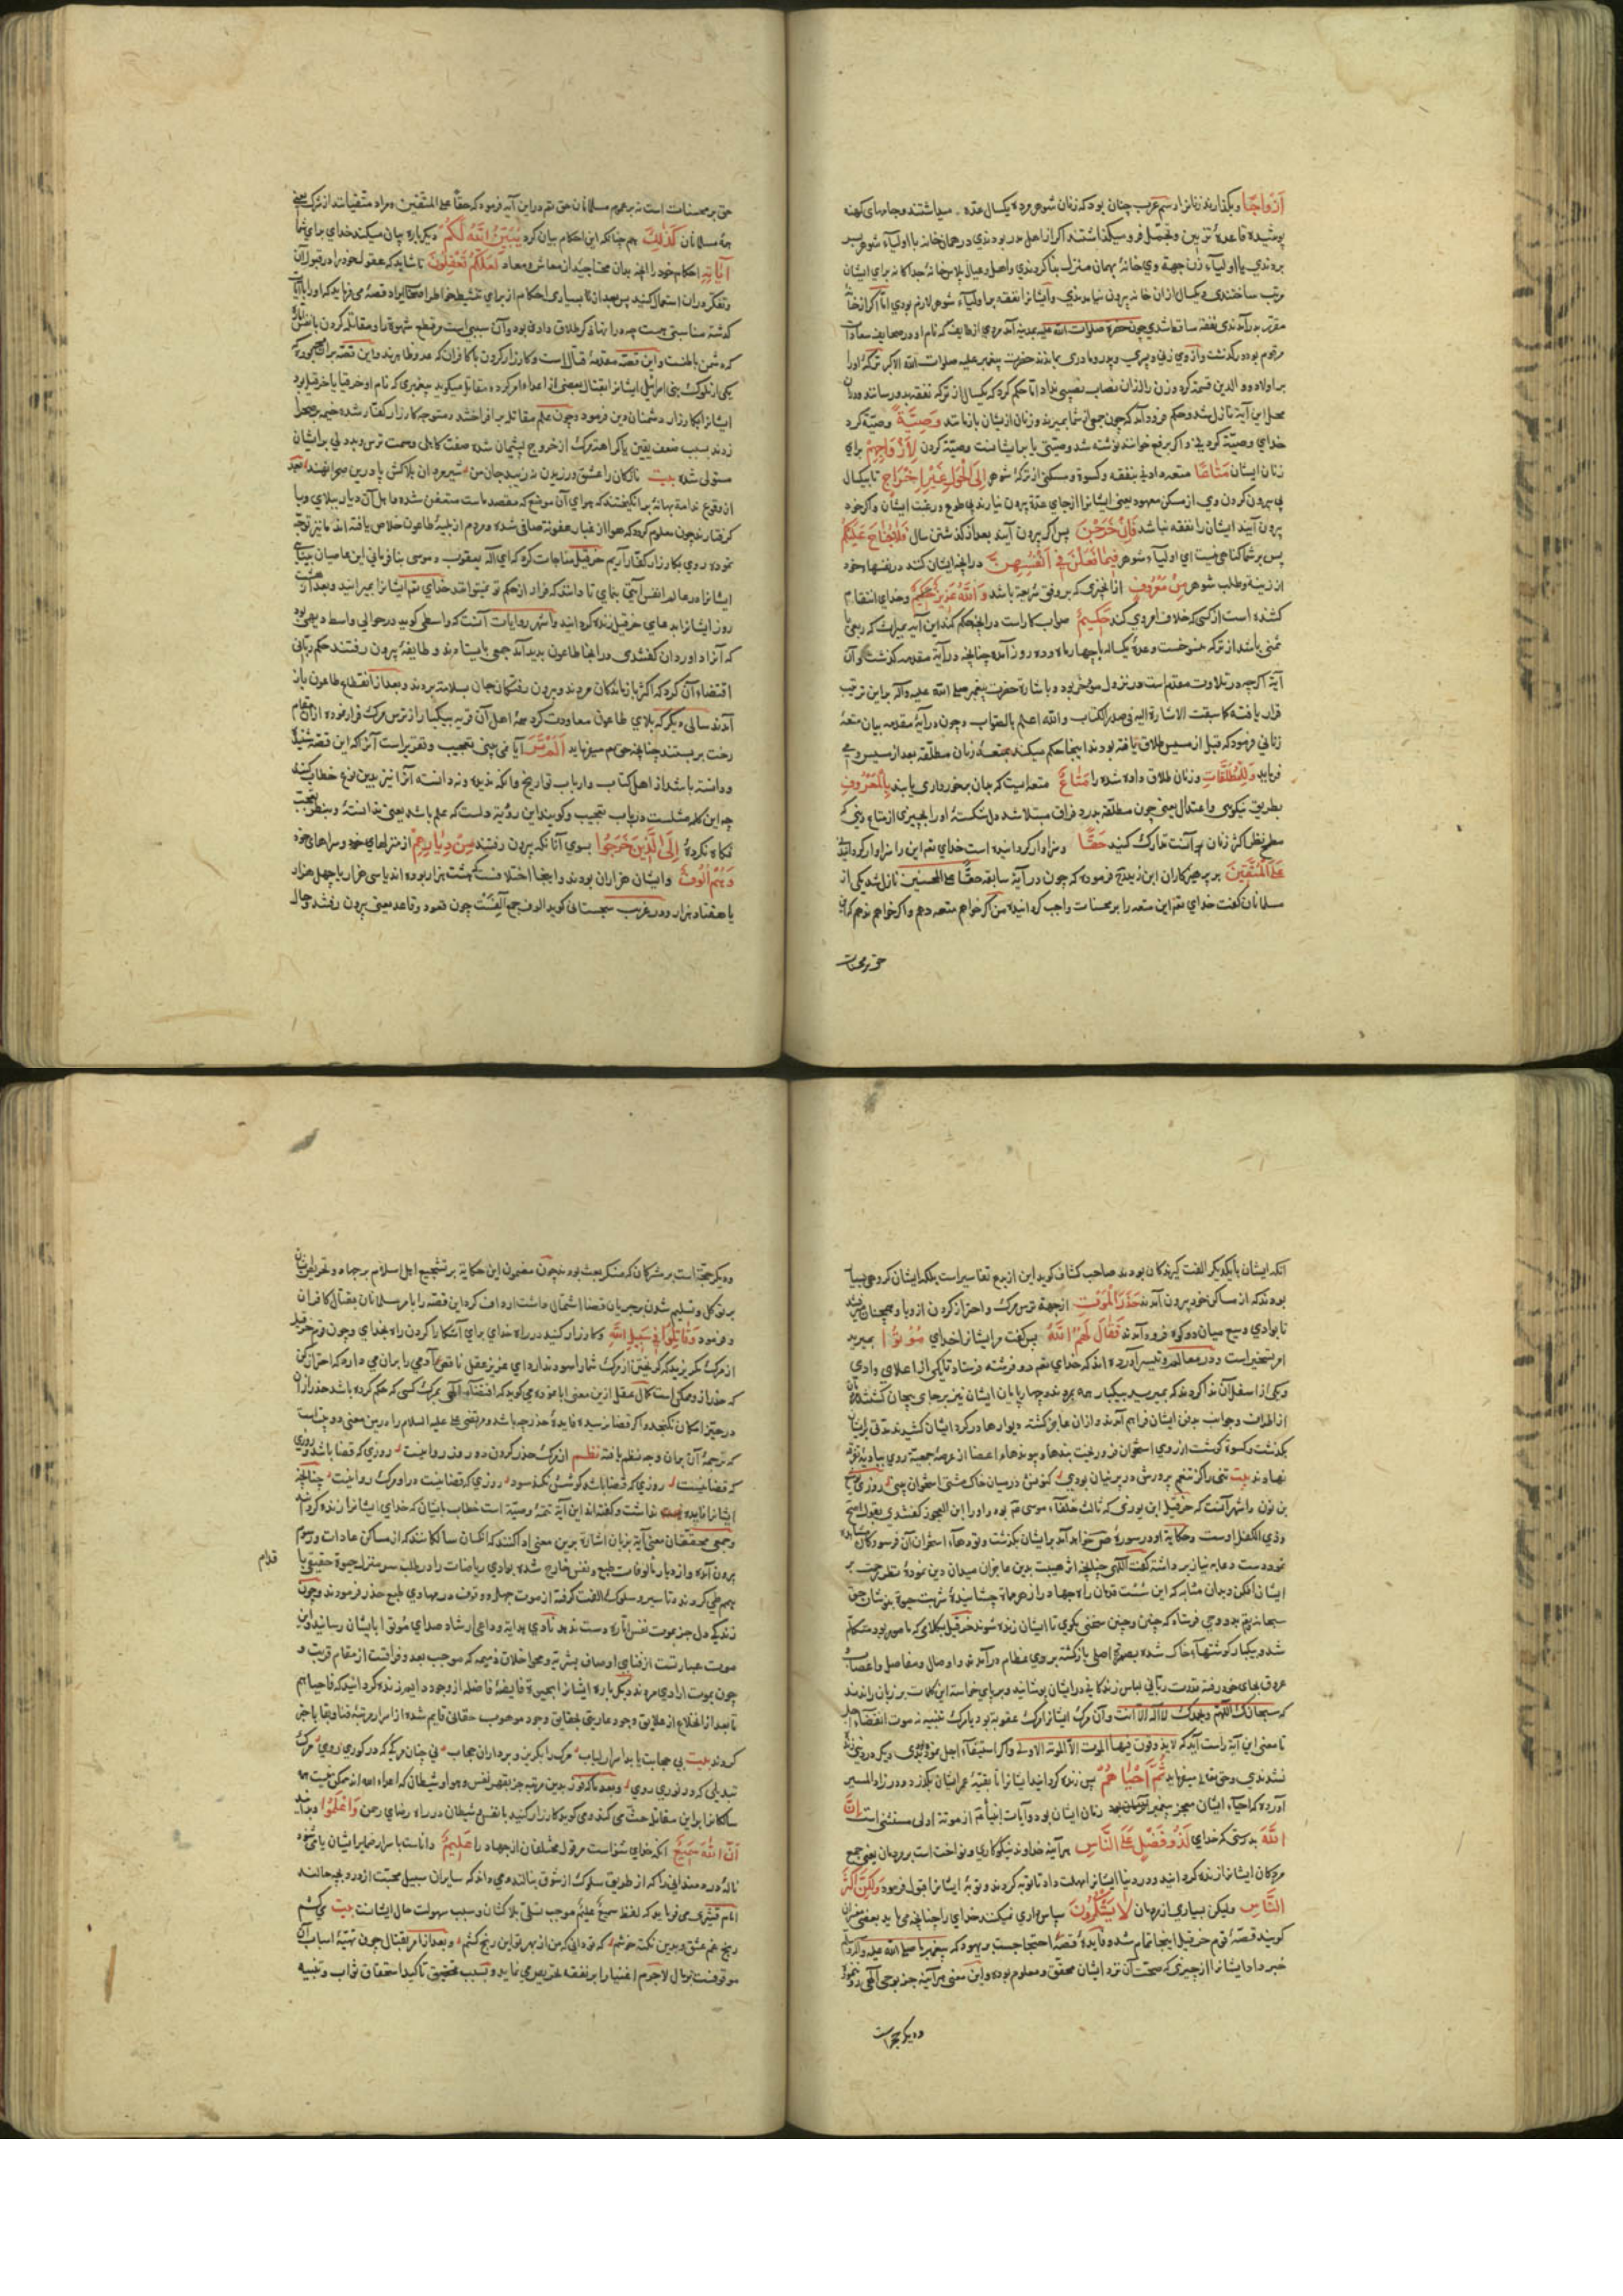 ازواجا و بگذارند زنانرا و رسم عرب چنان بود که زنان شوهر مرده یکسال عده میداشتند و جامهای کهنه
پوشیده قاعدۀ تزیین و تجمل فرو میگذاشتند اگر از اهل مدر بودندی در همان خانه با اولیاء شوهر بسر
بردندی یا اولیاء زن جهة وی خانۀ بهمان منزل بنا کردندی و اهل وعیال پلاس خانۀ جداگانه برای ایشان
مرتب ساختندی و یکسال از ان خانه بیرون نیامدندی و ایشانرا نفقه بر اولیاء شوهر لازم بودی اما اگر از خانۀ
مقرر بدر آمدندی نفقه ساقط شدی چون حضرة صلوات الله علیه بمدینه آمد مردی از طایف که نام او در صحایف سعادات
مرقوم بود درگذشت و از وی زنی و پسری و پدر و مادری بماندند حضرت پیغمبر علیه صلوات الله الاکبر ترکۀ او را
بر اولاد و والدین قسمة کرد و زن را از ان نصاب نصیبی نداد اما حکم کرد که یکسال از ترکه نفقه بدو رسانند و در ان
محل این آیة نازل شد و حکم فرود آمد که چون جمعی از شما بمیرند و زنان از یشان باز مانند وصیة وصیة کرد
خدای وصیة کردنی و اگر برفع خوانند نوشته شد وصیتی یا بر ایشانست وصیة کردن لازواجهم برای
زنان ایشان متاعا متعه دادنی بنفقه و کسوة و مسکنی از ترکۀ شوهر الی الحول غیر اخراج تا یکسال
بی بیرون کردن وی از مسکن معهود یعنی ایشانرا از جای عدة بیرون نیارند بی طوع و رغبت ایشان و اگر خود
بیرون آیند ایشان را نفقه نباشد فان خرجن پس اگر بیرون آیند بعد از گذشتن سال فلا جناح علیکم
پس بر شما گناهی نیست ای اولیاء شوهر فیما فعلن فی انفسهن در آنچه ایشان کنند در نفسهاء خود
از زینة و طلب شوهر من معروف از آنچیزی که بر وفق شریعة باشد والله عزیز حکیم و خدای انتقام
کشنده است از کسی که خلاف امر وی کند حکیم صواب کار است در آنچه حکم کند این آیه بمیراث که ربعی یا
ثمنی باشد از ترکه منسوخست و عدۀ یکساله با چهار ماه و ده روز آمده چنانچه در آیة مقدمه گذشت و آن
آیة اگرچه در تلاوت مقدم است در نزول مؤخر بود و باشارة حضرت پیغمبر صلی الله علیه وآله بر این ترتیب
قرار یافته کما سبقت الاشارة الیه فی صدر الکتاب والله اعلم بالصواب و چون در آیة مقدمه بیان متعۀ
زنانی فرمود که قبل از مسیس طلاق یافته بودند اینجا حکم میکند بمتعۀ زنان مطلقه بعد از مسیس و می
فرماید وللمطلقات و زنان طلاق داده شده را متاع متعه ایست که بدان برخورداری یابند بالمعروف
بطریق نیکوی و اعتدال یعنی چون مطلقه بدرد فراق مبتلا شد دل شکستۀ او را بچیزی از متاع دنیی که
مطرح نظر اکثر زنان بر آنست تدارک کنید حقا و سزاوار گردانیده است خدای تع این را سزاوار گردانیدنی
علی المتقین بر پرهیزکاران ابن زید رح فرموده که چون در آیة سابقه حقا علی المحسنین نازل شد یکی از
مسلمانان گفت خدای تع این متعه را بر محسنات واجب گردانیده من اگر خواهم متعه دهم و اگر خواهم ندهم
حق بر محسنات
حق بر محسنات است نه بر عموم مسلمانان حق تع در این آیه فرمود که حقا علی المتقین و مراد متقیانند از شرک یعنی
همه مسلمانان کذلک همچنانکه این احکام بیان کرد یبین الله لکم دیگر باره بیان میکند خدای برای شما
آیاته احکام خود را آنچه بدان محتاجید از معاش و معاد لعلکم تعقلون تا شاید که عقول خود را در قبول آن
و تفکر در ان استعمال کنید پس بعد از بسیاری احکام از برای تنشیط خواطر اصحاب ایراد قصۀ می فرماید که او را با آیات
گذشته مناسبتی هست چه در انها ذکر طلاق دادن بود و آن سببی است مر قطع شهوة را و مقاتله کردن با نفس
که دشمن باطنست و این قصه مقدمۀ قتال است و کارزار کردن با کافران که عدو ظاهرند و این قصه بر
یکی از ملوک بنی اسرائیل ایشانرا بقتال بعضی از اعداء امر کرده مقاتل میگوید پیغمبری که نام او حزقیا یا حزقیل بود
ایشانرا بکارزار دشمنان دین فرمود و چون علم مقاتله برافراختند و متوجه کارزار کفار شده خیمه بصحرا
زدند بسبب ضعف یقین یا کراهت مرگ از خروج پشیمان شده صفت کاهلی و سمت ترس و بددلی بر ایشان
مستولی شد بیت ناکسان را عشق ورزیدن نزیبد جان من شیرمردان بلاکش پا درین میدان نهند بعد
از وقوع ندامة بهانۀ بر انگیختند که هوای آن موضع که مقصد ماست متعفن شده و اهل آن دیار ببلای وبا
گرفتارند چون معلوم گردد که هوا از غبار عفونة صافی شده و مردم از بلیۀ طاعون خلاص یافته اند ما نیز توجه
نموده روی بکارزار کفار آریم حزقیل مناجات کرد که ای اله یعقوب و موسی بنافرمانی این عاصیان بینایی
ایشانرا در عالم انفس آیتی بنمای تا دانند که فرار از حکم تو نمیتوانند خدای تع ایشانرا بمیرانید و بعد از هشت
روز ایشانرا بدعای حزقیل زنده گردانید و اشهر روایات آنست که واسطی گوید در حوالی واسط دیهی بود
که آنرا داوردان گفتندی در انجا طاعون پدید آمد جمعی بایستادند و طایفۀ بیرون رفتند حکم ربانی
اقتضاء آن کرد که اکثر بازماندگان مردند و بیرون رفتگان جان بسلامة بردند و بعد از انقطاع طاعون باز
آمدند سالی دیگر که بلای طاعون معاودت کرد همۀ اهل آن قریه بیکبار از ترس مرگ فرار نموده ازان مقام
رخت بربستند چنانچه حق تع میفرماید الم تر آیا نمی بینی تعجیب و تقریر است آنرا که این قصه شنیده
و دانسته باشد از اهل کتاب و ارباب تواریخ و آنکه ندیده و ندانسته آنرا نیز بدین نوع خطاب کنند
چه این کلمه مثلست در باب تعجیب و گویند این رویة دلست که علم باشد یعنی ندانستۀ و بنظر تعجب
نگاه نکردۀ الی الذین خرجوا بسوی آنانکه بیرون رفتند من دیارهم از منزلهای خود و سراهای خود
وهم الوف و ایشان هزاران بودند و اینجا اختلافست که هشت هزار بوده اند یا سی هزار یا چهل هزار
یا هفتاد هزار و در غریب سجستانی گوید الوف جمع آلفست چون قعود و قاعد یعنی بیرون رفتند و حال
آنکه ایشان با یکدیگر الفت گیرندگان بودند صاحب کشاف گوید این از بدع تفاسیر است بلکه ایشان گروهی بسیار
بودند که از مساکن خود بیرون آمدند حذر الموت از جهة ترس مرگ و احتراز کردن از وبا و همچنان میرفتند
تا بوادی وسیع میان دو کوه فرود آمدند فقال لهم الله پس گفت مر ایشانرا خدای موتوا بمیرید
امر تسخیر است و در معالم و تیسیر آورده اند که خدای تع دو فرشته فرستاد تا یکی از اعلای وادی
و یکی از اسفل آن ندا کردند که بمیرید بیکبار همه بمردند و چهارپایان ایشان نیز بر جای بیجان گشتند
از اطراف و جوانب بدفن ایشان فراهم آمدند و از ان عاجز گشته دیوارها در گرد ایشان کشیدند مدتی بر ایشان
بگذشت و کسوة گوشت از روی استخوان فرو ریخت بندها و پیوندهاء اعضا از عرصۀ جمعیة روی ببادیۀ تفرقه
نهادند بیت تنی را کز تنعم پرورش در پرنیان بودی کنونش در میان خاک مشتی استخوان بینی روزی
بن نون و اشهر آنست که حزقیل ابن بوزی که ثالث خلفاء موسی ع بود و او را ابن العجوز گفتندی بقول اصح
و ذی الکفل اوست و حکایة او در سورۀ ص خواهد آمد بر ایشان بگذشت و تودهاء استخوان آن فرسودگان مشاهده
نمود دست دعا به نیاز برداشته گفت الهی چنانچه اثر هیبت بدین عاجزان میدان دین نمودۀ نظر رحمت بر
ایشان افکن و بدان مثابه که این
سبحانه تع بدو وحی فرستاد که چنین و چنین سخنی بگوی تا ایشان زنده شوند حزقیل بکلامی که مأمور بود متکلم
شد و بیکبار گوشتهاء خاک شده بصورة اصلی بازگشته بر روی عظام در آمدند و اوصال و مفاصل و اعصاب
و عروق بجای خود رفته قدرت ربانی لباس زندگانی در ایشان پوشانید و بر پای خاسته این کلمات بر زبان راندند
که سبحانک اللهم وبحمدک لا اله الا انت و آن مرگ ایشانرا مرگ عقوبة بود یا مرگ تنبیه نه موت انقضاء اجل
تا معنی این آیة راست آید که لا یذوقون فیها الموت الا الموتة الاولی و اگر استیفاء اجل نموده بودندی دیگر در دنیی زنده
نشدندی و حق تعالی میفرماید ثم احیاهم پس زنده گردانید ایشانرا تا بقیۀ عمر ایشان بگذرد و در زاد المسیر
آورده که احیاء ایشان معجز پیغمبر زمان ایشان بود و آیات انبیا ع از موتة اولی مستثنی است ان
الله بدرستی که خدای لذو فضل علی الناس هر آینه خداوند نیکوکاری و نواخت است بر مردمان یعنی جمع
مردگان ایشانرا زنده گردانید و در دنیا ایشانرا مهلت داد تا توبه کردند و توبۀ ایشانرا قبول فرمود ولکن اکثر
الناس ولیکن بسیاری از مردمان لا یشکرون سپاس داری نمیکنند خدای را چنانچه می باید بعضی مفسران
گویند قصۀ قوم حزقیل اینجا تمام شد و فایدۀ قصۀ احتجاجست بر یهود که پیغمبر ما صلی الله علیه وآله وسلم
خبر داد ایشانرا از چیزی که صحت آن نزد ایشان محقق و معلوم بود و این معنی هر آینه جز بوحی الهی روی ننمود
و دیگر حجة است
و دیگر حجة است بر مشرکان که منکر بعث بودند چون مضمون این حکایة بر تشجیع اهل اسلام بر جهاد و تحریض ایشان
بر توکل و تسلیم شدن مر جریان قضا را اشتمال داشت ارداف کرد این قصه را بامر مسلمانان بقتال کافران
و فرمود وقاتلوا فی سبیل الله و کارزار کنید در راه خدای برای آشکارا کردن راه خدای و چون قوم حزقیل
از مرگ مگریزید که گریختن از مرگ شما را سود ندارد ای عزیز عقل ناقص آدمی را بران می دارد که احتراز کن
که حذر از و ممکن است کمال عقل ازین معنی ابا نموده می گوید که اقتضاء الهی بمرگ کسی که حکم کرده باشد حذر از ان
در حیز امکان نگنجد و اگر قضا نرسیده فایدۀ حذر چه باشد و مرتضی علی علیه السلام را درین معنی دو بیت است
که ترجمۀ آن بدان وجه نظم یافته نظم از مرگ حذر کردن دو روز روا نیست روزی که قضا باشد و روزی
که قضا نیست روزی که قضا باشد کوشش نکند سود روزی که قضا نیست در او مرگ روا نیست چنانچه
ایشانرا فایده نداشت و گفته اند این آیة تتمۀ وصیة است خطاب با ایشان که خدای ایشانرا زنده کرد
و جمعی محققان معنی آیة بزبان اشارة برین معنی ادا کنند که انسان سالکانند که از مساکن عادات و رسوم
بیرون آمده و از دیار مألوفات طبع و نفس خارج شده بوادی ریاضات را در طلب سر منزل حیوة حقیقی با
قدم
هم طی کردند و تا سیر و سلوک الفت گرفته از موت جهل و وقوف در مهاوی طبع حذر فرمودند و چون
زندگی دل جز بموت نفس اماره دست ندهد منادی هدایة و داعی ارشاد صدای موتوا بایشان رسانید و این
موت عبارتست از فنای اوصاف بشریة و محو اخلاق ذمیمه که موجب بعد و فرقتست از مقام قربت و
چون بموت ارادی مردند دیگر باره ایشانرا بحیوة فایضۀ فاضله از وجود دایم زنده گردانید که فاحیاهم
تا بعد از انخلاع از علایق وجود عاریتی بحقایق وجود موهوب حقانی قایم شده از اسرار مرتبۀ فنا و بقا با خبر
گردند بیت بی حجابت باید اسرار لباب مرگ را بگزین و بردار آن حجاب نی چنان مرگی که در گوری روی مرگ
تبدیلی که در نوری روی و بعد بدین مرتبه جز بقهر نفس و هوا و شیطان که اعداء الله اند ممکن نیست
سالکانرا بر این مقاتله حث می کند و می گوید کارزار کنید با نفس و شیطان در راه رضای رحمن واعلموا و بدانید
ان الله سمیع آنکه خدای شنواست مر قول مختلفان از جهاد را علیم داناست باسرار ضمایر ایشان یا می شنود
نالۀ دردمندانی را که از طریق سلوک از شوق بنالند و می داند که سایران سبیل محبت از درد بچه حالند
امام قشیری می فرماید که لفظ سمیع علیم موجب تسلی بلاکشان و سبب سهولت حال ایشانست بیت می کشم
رنج غم عشق و بدین نکته خوشم که تو دانی که من از بهر تو این رنج کشم و بعد از امر بقتال چون تهیۀ اسباب آن
موقوفست بمال لاجرم اغنیا را بر نفقه تحریص می نماید و بسبب تحقیق تأکید استحقاق ثواب و تنبیه